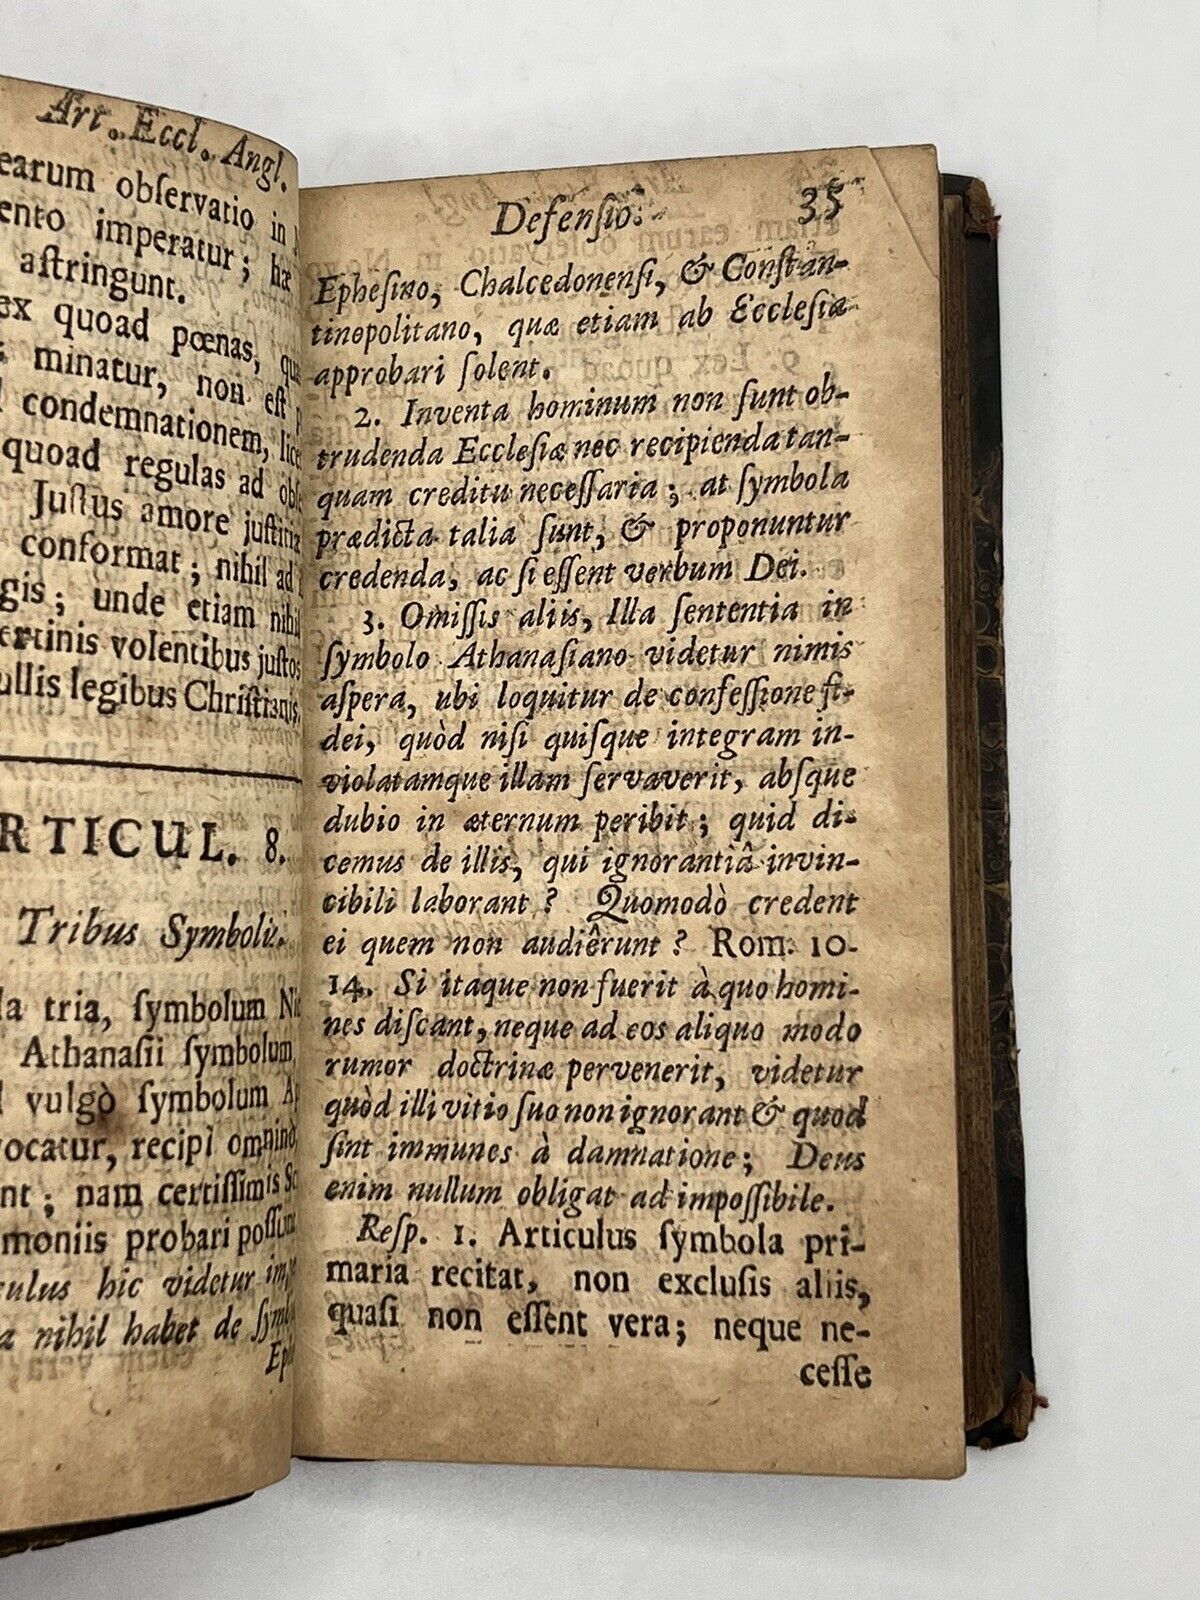 Art. Eccl. Angl.
earum obſervatio in
ento imperatur; hæ
aſtringunt.
ex quoad pœnas,
minatur, non eſt
condemnationem, lice
quoad regulas ad obſ
Juſtus amore juſtitiæ
conformat; nihil ad
gis; unde etiam nihil
ertinis volentibus juſtos
ullis legibus Chriſtianis,
RTICUL. 8.
Tribus Symbolis.
la tria, ſymbolum Nic
Athanaſii ſymbolum,
vulgò ſymbolum Ap
vocatur, recipi omnino
nt; nam certiſſimis Sc
moniis probari poſſunt
culus hic videtur imp
a nihil habet de ſymbo
Ephe
Defenſio. 35
Epheſino, Chalcedonenſi, & Conſtan-
tinopolitano, quæ etiam ab Eccleſia
approbari ſolent.
2. Inventa hominum non ſunt ob-
trudenda Eccleſiæ nec recipienda tan-
quam creditu neceſſaria; at ſymbola
prædicta talia ſunt, & proponuntur
credenda, ac ſi eſſent verbum Dei.
3. Omiſſis aliis, Illa ſententia in
ſymbolo Athanaſiano videtur nimis
aſpera, ubi loquitur de confeſſione fi-
dei, quòd niſi quiſque integram in-
violatamque illam ſervaverit, abſque
dubio in æternum peribit; quid di-
cemus de illis, qui ignorantiâ invin-
cibili laborant? Quomodò credent
ei quem non audiêrunt? Rom. 10-
14. Si itaque non fuerit à quo homi-
nes diſcant, neque ad eos aliquo modo
rumor doctrinæ pervenerit, videtur
quòd illi vitio ſuo non ignorant & quod
ſint immunes à damnatione; Deus
enim nullum obligat ad impoſſibile.
Reſp. 1. Articulus ſymbola pri-
maria recitat, non excluſis aliis,
quaſi non eſſent vera; neque ne-
ceſſe